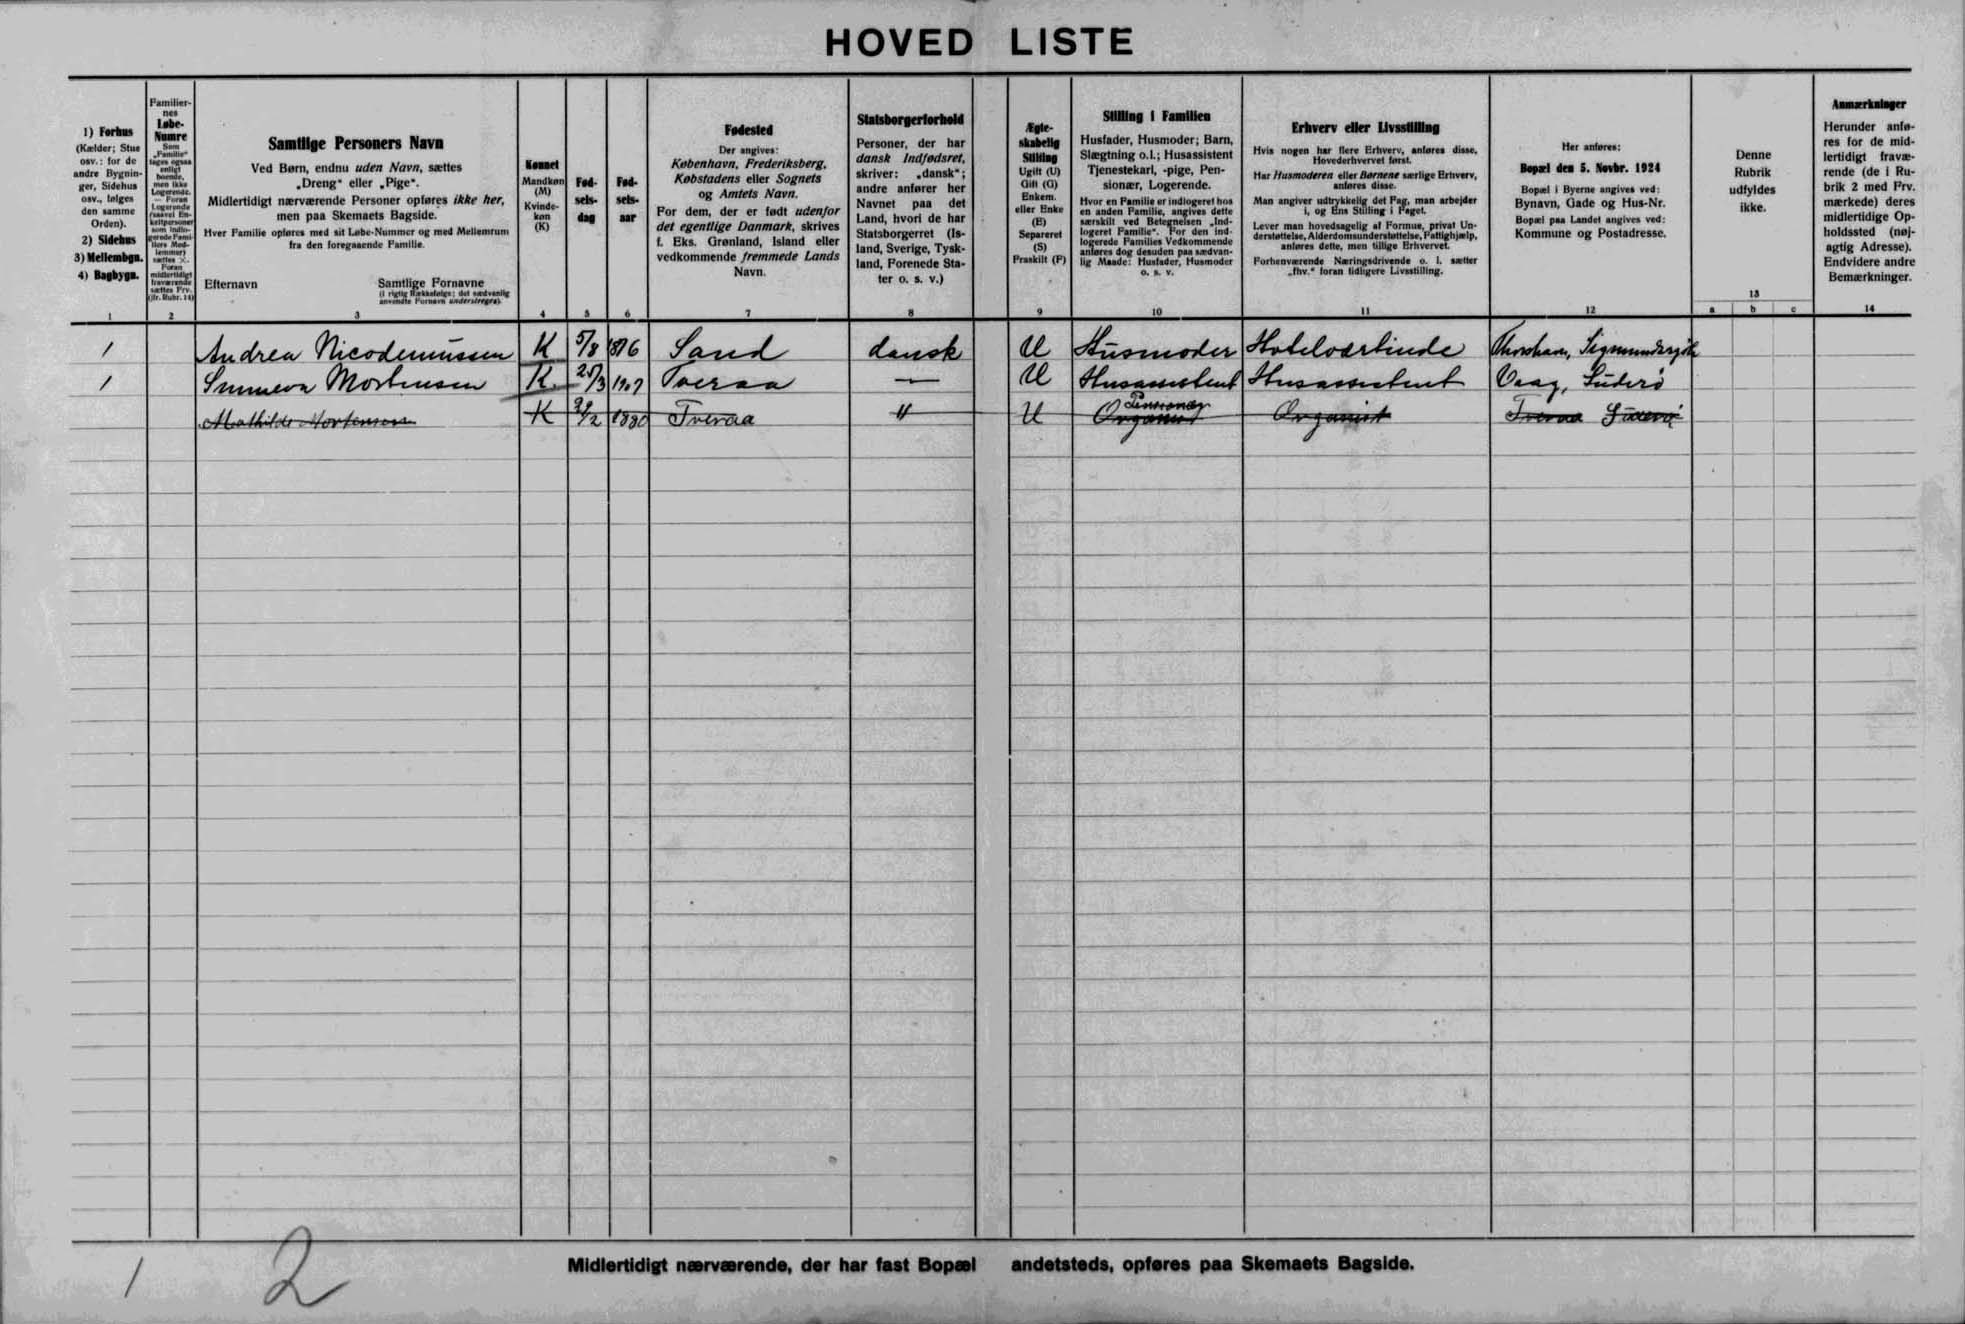 HOVED LISTE
1) Forhus
(Kælder; Stue
osv.: for de
andre Bygnin-
ger, Sidehus
osv., følges
den samme
Orden).
2) Sidehus
3) Mellembgn.
4) Bagbygn.
1
Familier-
nes
Løbe-
Numre
Som
„Familie“
tages ogsaa
enligt
boende,
men ikke
Logerende.
— Foran
Logerende
(saavel En-
keltpersoner
som indlo-
gerede Fami-
liers Med-
lemmer)
sættes ×.
Foran
midlertidigt
fraværende
sættes Frv.
(jfr. Rubr. 14)
2
Samtlige Personers Navn
Ved Børn, endnu uden Navn, sættes
„Dreng“ eller „Pige“.
Midlertidigt nærværende Personer opføres ikke her,
men paa Skemaets Bagside.
Hver Familie opføres med sit Løbe-Nummer og med Mellemrum
fra den foregaaende Familie.
Efternavn Samtlige Fornavne
(i rigtig Rækkefølge; det sædvanlig
anvendte Fornavn understreges).
3
Kønnet
Mandkøn
(M)
Kvinde-
køn
(K)
4
Fød-
sels-
dag
5
Fød-
sels-
aar
6
Fødested
Der angives:
København, Frederiksberg,
Købstadens eller Sognets
og Amtets Navn.
For dem, der er født udenfor
det egentlige Danmark, skrives
f. Eks. Grønland, Island eller
vedkommende fremmede Lands
Navn.
7
Statsborgerforhold
Personer, der har
dansk Indfødsret,
skriver: „dansk“;
andre anfører her
Navnet paa det
Land, hvori de har
Statsborgerret (Is-
land, Sverige, Tysk-
land, Forenede Sta-
ter o. s. v.)
8
Ægte-
skabelig
Stilling
Ugift (U)
Gift (G)
Enkem.
eller Enke
(E)
Separeret
(S)
Fraskilt (F)
9
Stilling i Familien
Husfader, Husmoder; Barn,
Slægtning o.l.; Husassistent
Tjenestekarl, -pige, Pen-
sionær, Logerende.
Hvor en Familie er indlogeret hos
en anden Familie, angives dette
særskilt ved Betegnelsen „Ind-
logeret Familie“. For den ind-
logerede Families Vedkommende
anføres dog desuden paa sædvan-
lig Maade: Husfader, Husmoder
o. s. v.
10
Erhverv eller Livsstilling
Hvis nogen har flere Erhverv, anføres disse,
Hovederhvervet først.
Har Husmoderen eller Børnene særlige Erhverv,
anføres disse.
Man angiver udtrykkelig det Fag, man arbejder
i, og Ens Stilling i Faget.
Lever man hovedsagelig af Formue, privat Un-
derstøttelse, Alderdomsunderstøttelse, Fattighjælp,
anføres dette, men tillige Erhvervet.
Forhenværende Næringsdrivende o. l. sætter
„fhv.“ foran tidligere Livsstilling.
11
Her anføres:
Bopæl den 5. Novbr. 1924
Bopæl i Byerne angives ved:
Bynavn, Gade og Hus-Nr.
Bopæl paa Landet angives ved:
Kommune og Postadresse.
12
Denne
Rubrik
udfyldes
ikke.
13
a b c
Anmærkninger
Herunder anfø-
res for de mid-
lertidigt fravæ-
rende (de i Ru-
brik 2 med Frv.
mærkede) deres
midlertidige Op-
holdssted (nøj-
agtig Adresse).
Endvidere andre
Bemærkninger.
14
1 Andrea Nicodemussen K 5/8 1876 Sand dansk U Husmoder Hotelværtinde Thorshavn,
1 Sunneva Mortensen K. 25/3 1907 Tveraa — U Husassistent Husassistent Vaag, Suderø
Mathilde Mortensen K /2 1880 Tveraa " U Organist Pensionær Organist Tveraa Suderø
Midlertidigt nærværende, der har fast Bopæl andetsteds, opføres paa Skemaets Bagside.
1 2